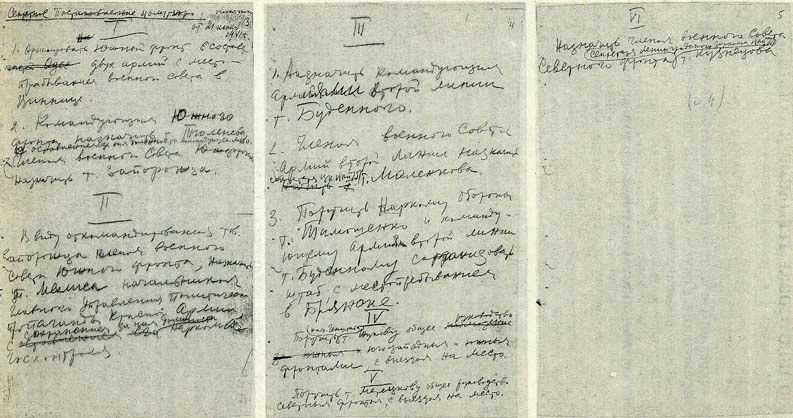 от 21 июня
I
1. Организовать Южный фронт в составе
двух армий с место-
пребыванием военного совета в
Виннице.
2. Командующим Южного
фронта назначить т. Тюленева,
Членом военного Совета Южфронта
назначить т. Запорожца.
II
В виду откомандирования тов.
Запорожца членом военного
Совета Южного фронта, назначить
т. Мехлиса начальником
Главного Управления Политической
пропаганды Красной Армии
с сохранением за ним
госконтроля
III
1. Назначить командующим
армиями второй линии
т. Буденного.
2. Членом военного Совета
армий второй линии назначить
т. Маленкова.
3. Поручить Наркому Обороны
т. Тимошенко и команду-
ющему армиями второй линии
т. Буденному сорганизовать
штаб с местопребыванием
в Брянске.
IV
Поручить общее руководство
юго-западным и южным
фронтами с выездом на место.
V
Поручить т. Мерецкову общее руководство
северным фронтом, с выездом на место.
5
VI
Назначить членом военного Совета
Северного фронта т. Кузнецова